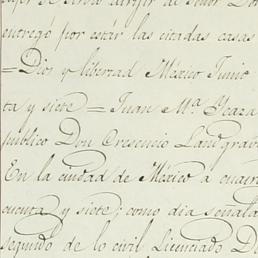 dirijir al Señor Don
entregó por estár las citadas casas
=Dios y libertad México Junio
ta y siete = Juan Mª. Ycaza
publico Don Cresencio Land
En la ciudad de México a cuatro
cuenta y siete; como dia señala
segundo de lo civil Licenciado D